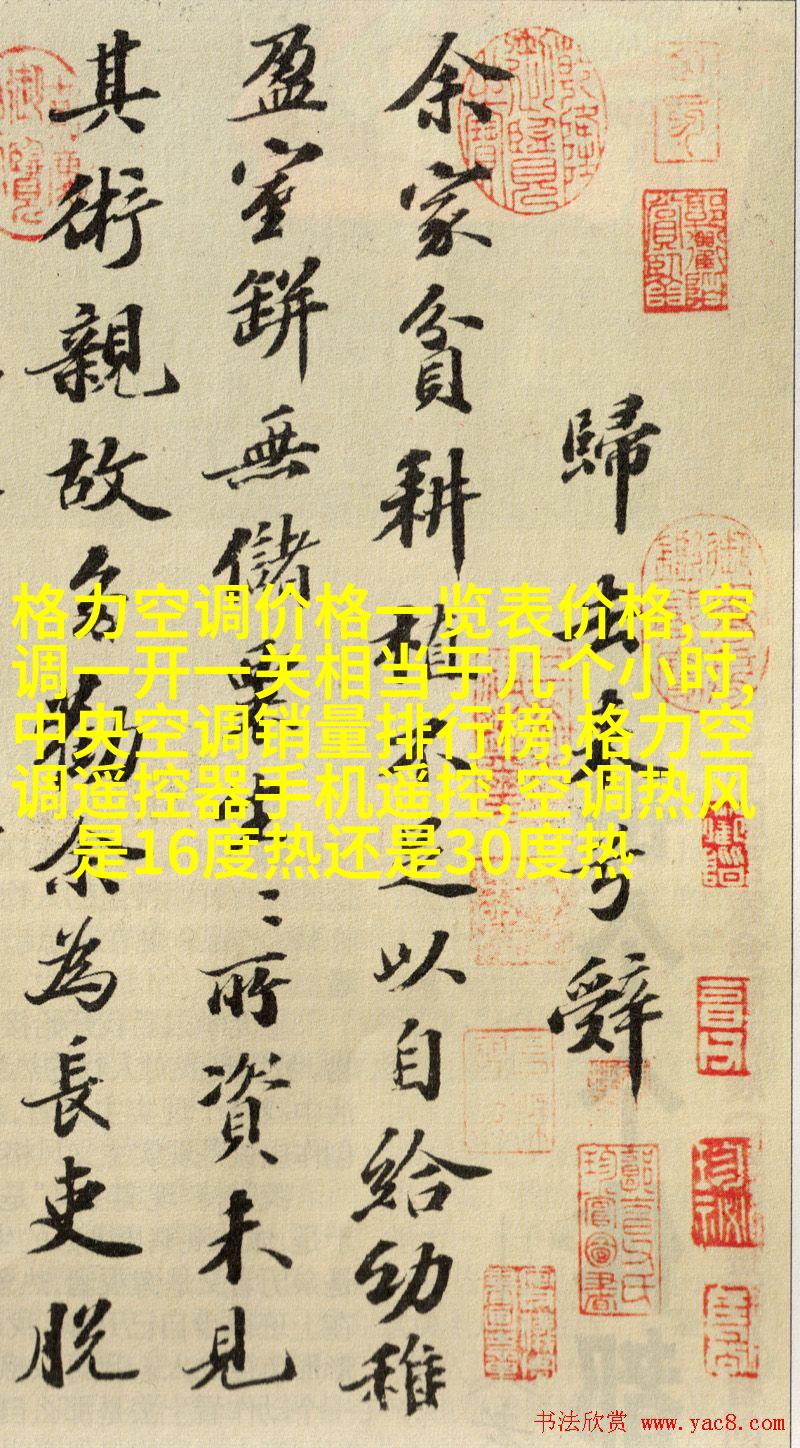 歸去来兮辭
余家貧耕植不足以自給幼稚
盈室缾無儲粟生〻所資未見
其術親故多勸余為長吏脫
格力空调价格一览表价格,空
调一开一关相当于几个小时,
中央空调销量排行榜,格力空
调遥控器手机遥控,空调热风
是16度热还是30度热
书法欣赏 www.yac8.com